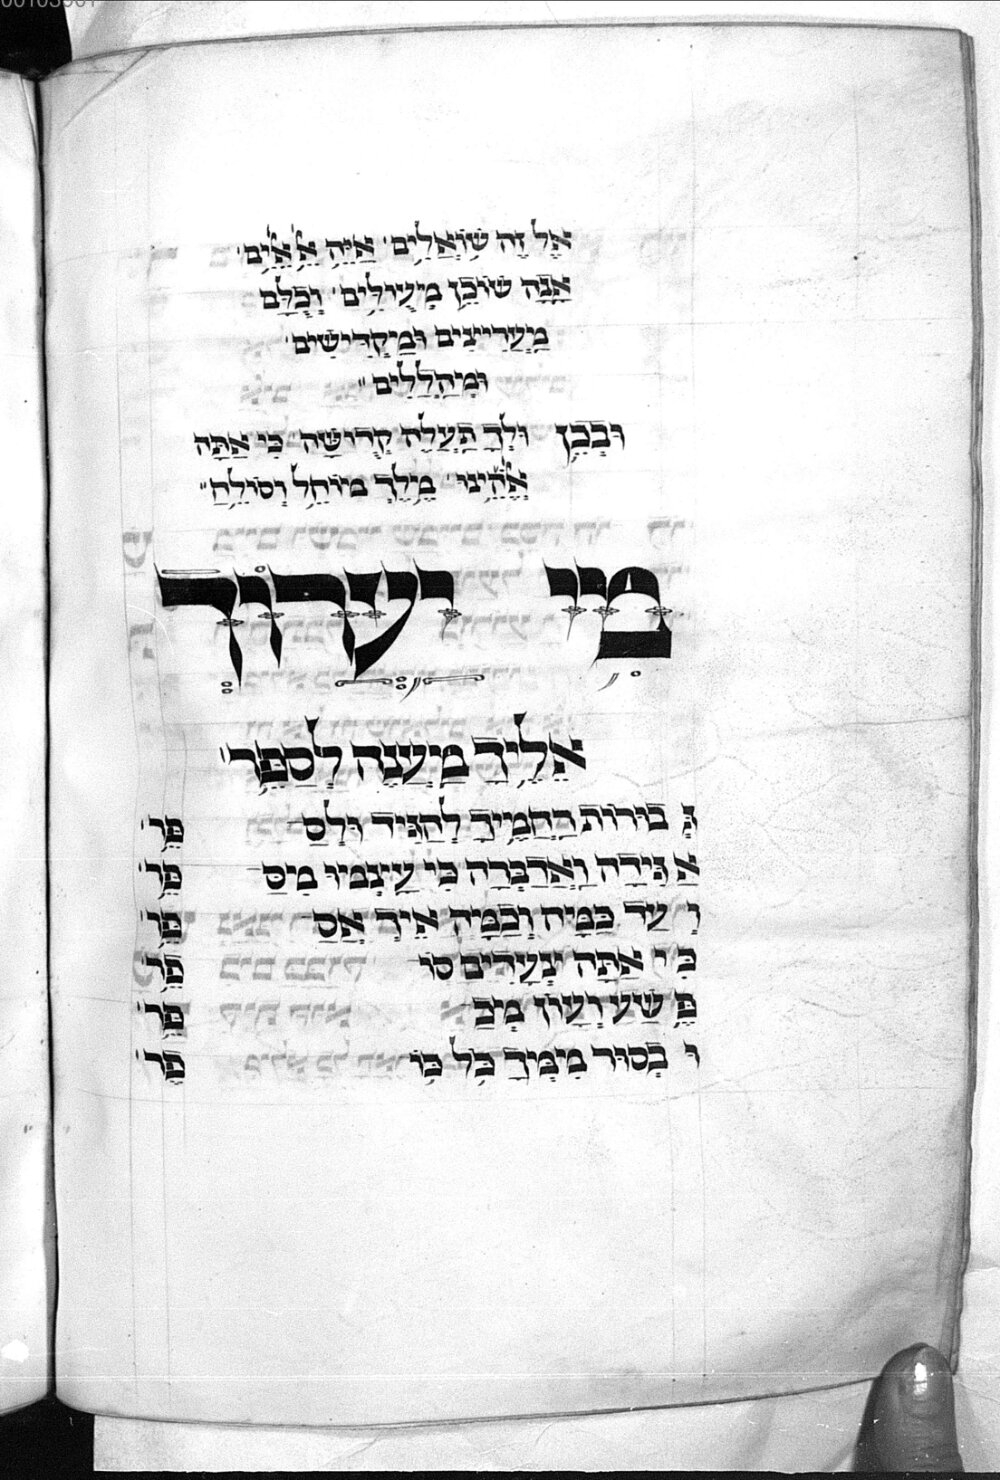 אֵל זֶה שׁוֹאֲלִים׳ אַיֵּה אֵלִ אֵלִים׳
אָנָּה שׁוֹכֵן מְעֻילִּים׳ וְכֻלָּם
מַעֲרִיצִים וּמַקְדִּישִׁים׳
וּמְהַלְלִים״
וּבְכֵן וּלְךָ תַעֲלֶה קְדוּשָּׁה כִּי אַתָּה
אֱלֹהֵינוּ׳ מֶלֶךְ מוֹחֵל וְסוֹלֵחַ״
מִי יַעֲרוֹךְ
אֵלֶיךָ מַעֲנֶה לְסַפֵּר׳
גְּ בוּרוֹת חֲכָמֶיךָ לְהַגִּיד וּלְסַ פֵּר׳
אַ גִּידָה וַאֲדַבְּרָה כִּי עָצְמוּ מִסַּ פֵּר׳
וְ עַד כַּמָּה וְכַמָּה אֵיךְ אֲסַ פֵּר׳
כִּ י אַתָּה יְצָעִדִים סוֹ פֵּר׳
פֶּ שַׁע וְעָוֹן מְכַ פֵּר׳
וּ בְסוּר מִמְּךָ כֹּל כּוֹ פֵר׳